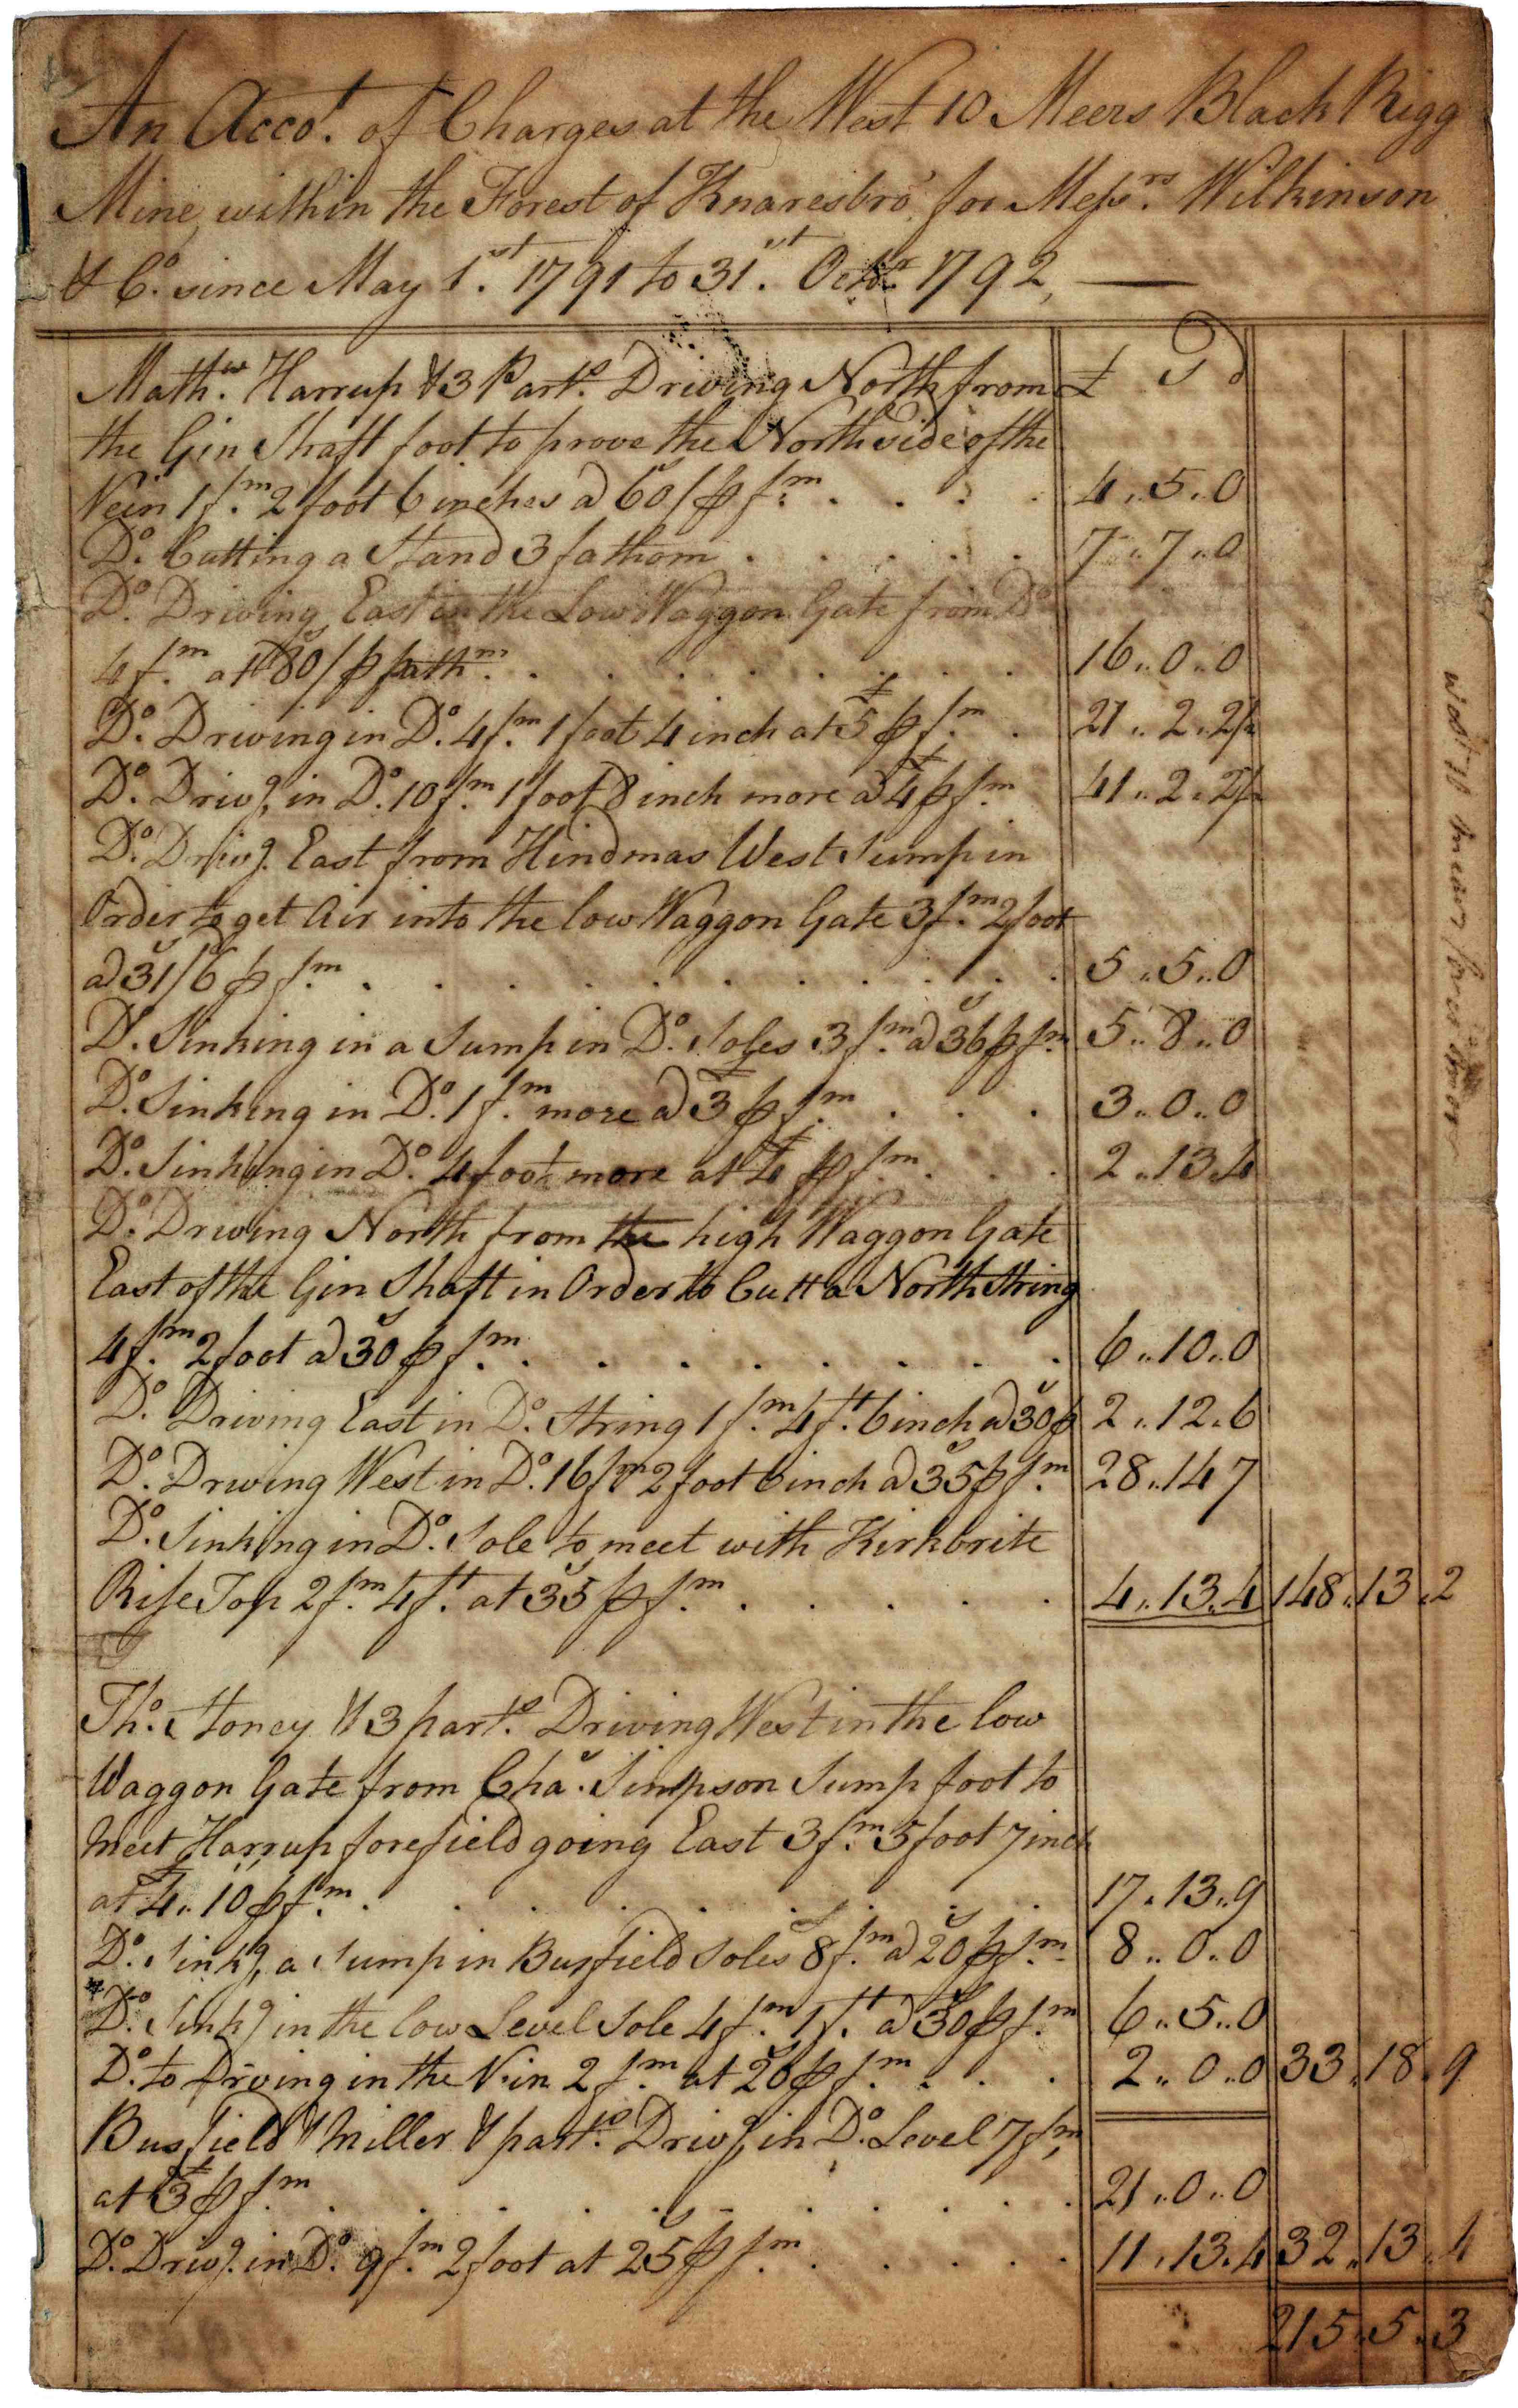 An Acco.t of Charges at the West 10 Meers Black Rigg
Mine, within the Forest of Knaresbro' for Messrs. Wilkinson
& Co. since May 1.st 1791 to 31.st Octr. 1792,
Math.w Harrup & 3 Part.s Driving North from £ S d
the Gin Shaft foot to prove the North side of the
Vein 1 f.m 2 foot 6 inches a 60/ ⅌ f.m 4..5..0
Do. Cutting a Stand 3 fathom 7..7..0
Do. Driving East in the Low Waggon Gate from Do.
4 f.m at 80/ ⅌ fath.m 16..0..0
Do. Driving in Do. 4 f.m 1 foot 4 inch at £5 ⅌ f.m 21..2..2½
Do. Driv.g in Do. 10 f.m 1 foot 8 inch more a £4 ⅌ f.m 41..2..2½
Do. Driv.g East from Hindmas West Sump in
Order to get Air into the low Waggon Gate 3 f.m 2 foot
a 31/6 ⅌ f.m 5..5..0
Do. Sinking in a Sump in Do. Soles 3 f.m a 36s ⅌ f.m 5..8..0
Do. Sinking in Do. 1 f.m more a £3 ⅌ f.m 3..0..0
Do. Sinking in Do. 4 foot more at £4 ⅌ f.m 2..13..4
Do. Driving North from the high Waggon Gate
East of the Gin Shaft in Order to Cutt a North String
4 f.m 2 foot a 30s ⅌ f.m 6..10..0
Do. Driving East in Do. String 1 f.m 4 f.t 6 inch a 30s ⅌ 2..12..6
Do. Driving West in Do. 16 f.m 2 foot 6 inch a 35s ⅌ f.m 28..14 7
Do. Sinking in Do. Sole to meet with Kirkbrite
Rise Top 2 f.m 4 f.t at 35s ⅌ f.m 4..13..4 148..13..2
Tho. Stoney & 3 part.s Driving West in the low
Waggon Gate from Cha.s Simpson Sump foot to
meet Harrup forefield going East 3 f.m 5 foot 7 inch
at £4..10 ⅌ f.m 17..13..9
Do. Sink.g a Sump in Busfield Soles 8 f.m a 20s ⅌ f.m 8..0..0
Do. Sink.g in the low Level Sole 4 f.m 1 f.t a 30s ⅌ f.m 6..5..0
Do. to Driving in the Vein 2 f.m at 20s ⅌ f.m 2..0..0 33..18..9
Busfield & Miller & part.s Driv.g in Do. Level 7 f.m
at £3 ⅌ f.m 21..0..0
Do. Driv.g in Do. 9 f.m 2 foot at 25s ⅌ f.m 11..13..4 32..13..4
215..5..3